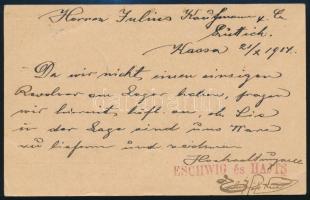 Herren Julius Kaufmann & Co
Lüttich.
Kassa 2/X 1914.
Da wir nicht einen einzigen
Revolver am Lager haben, fragen
wir hiermit höfl. an, ob Sie
in der Lage sind uns Ware
zu liefern und zeichnen
Hochachtungsvoll
ESCHWIG és HAITS